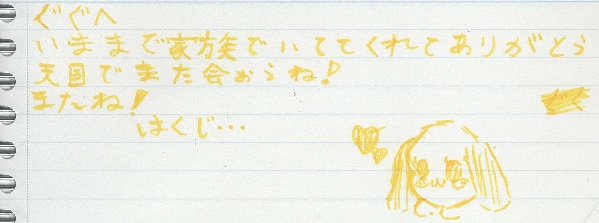 ぐぐへ
いままで家族でいててくれてありがとう
天国でまた会おうね!
またね!
はくじ…